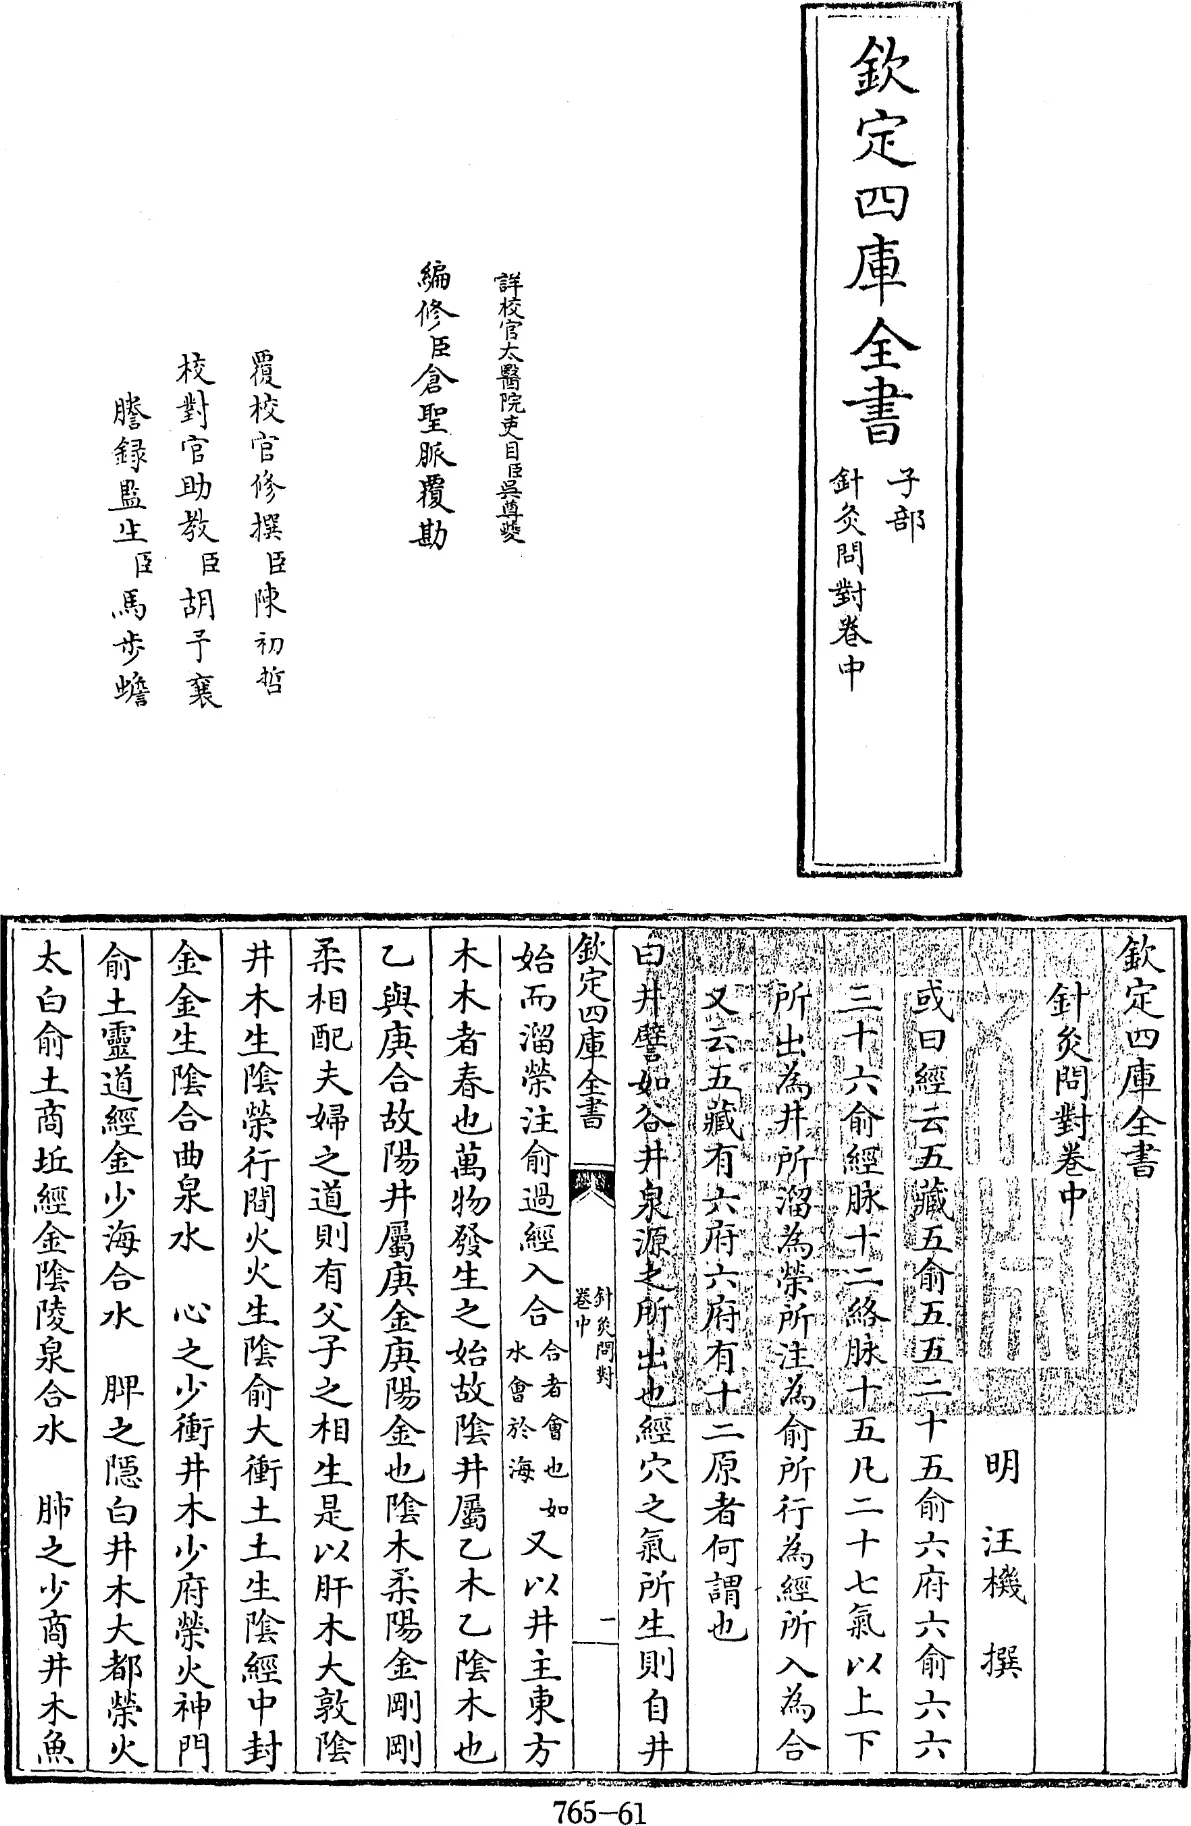 欽定四庫全書
子部
針灸問對卷中
詳校官太醫院吏目臣吳尊夔
編修臣倉聖脈覆勘
覆校官修撰臣陳初哲
校對官助教臣胡予襄
謄録監生臣馬步蟾
欽定四庫全書
針灸問對卷中
明 汪機 撰
或曰經云五藏五俞五五二十五俞六府六俞六六
三十六俞經脉十二絡脉十五凡二十七氣以上下
所出為井所溜為滎所注為俞所行為經所入為合
又云五藏有六府六府有十二原者何謂也
曰井譬如谷井泉源之所出也經穴之氣所生則自井
欽定四庫全書
針灸問對
卷中
一
始而溜滎注俞過經入合合者會也如水會於海又以井主東方
木木者春也萬物發生之始故陰井屬乙木乙陰木也
乙與庚合故陽井屬庚金庚陽金也陰木柔陽金剛剛
柔相配夫婦之道則有父子之相生是以肝木大敦陰
井木生陰滎行間火火生陰俞大衝土土生陰經中封
金金生陰合曲泉水 心之少衝井木少府滎火神門
俞土靈道經金少海合水 脾之隱白井木大都滎火
太白俞土商坵經金陰陵泉合水 肺之少商井木魚
765-61